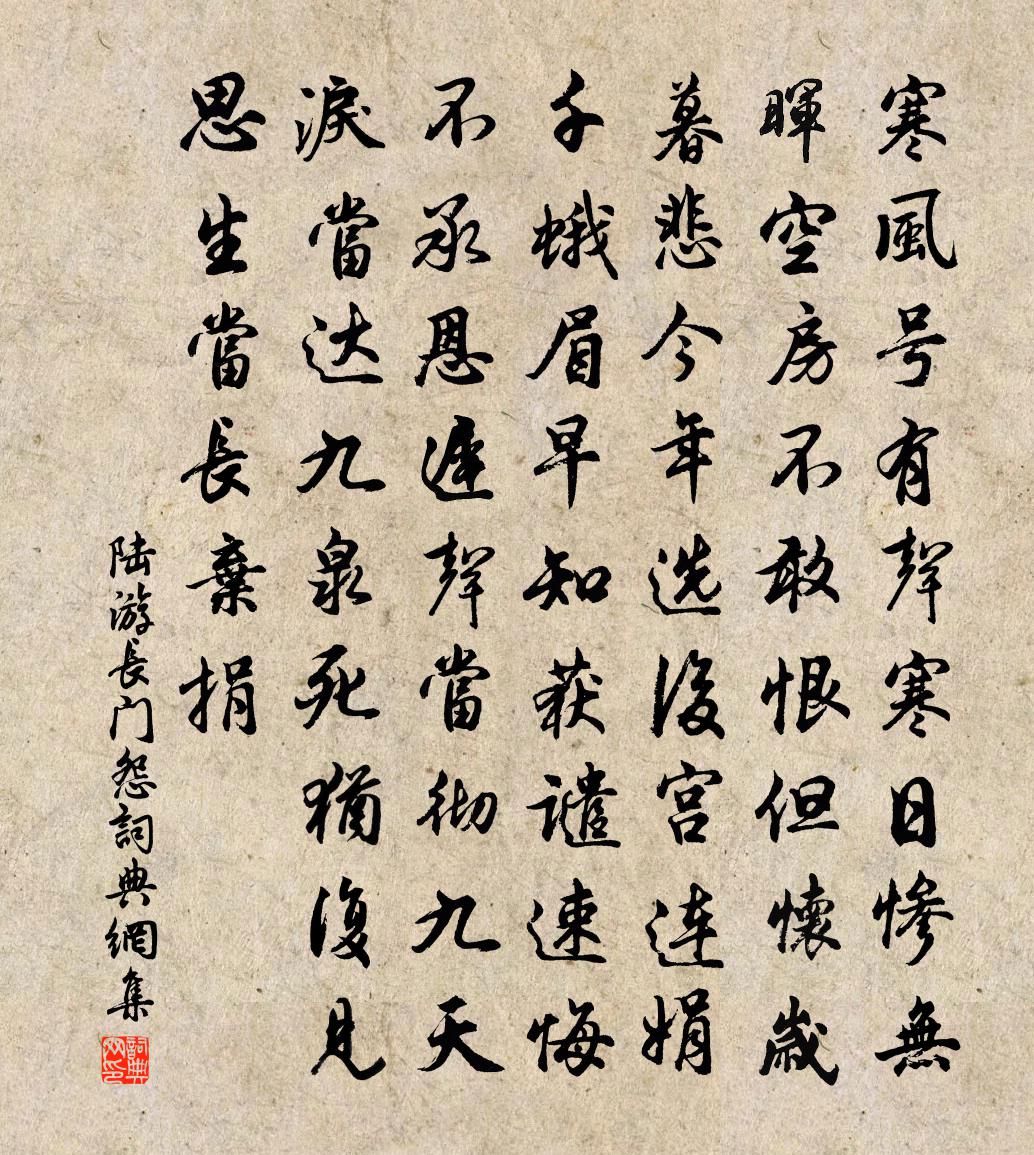 寒風号有聲寒日惨無
暉空房不敢恨但懷歲
暮悲今年选後宫連娟
千蛾眉早知获譴速悔
不承恩遲聲當彻九天
淚當达九泉死猶復見
思生當長棄捐
陆游長门怨詞典網集
詞典网印